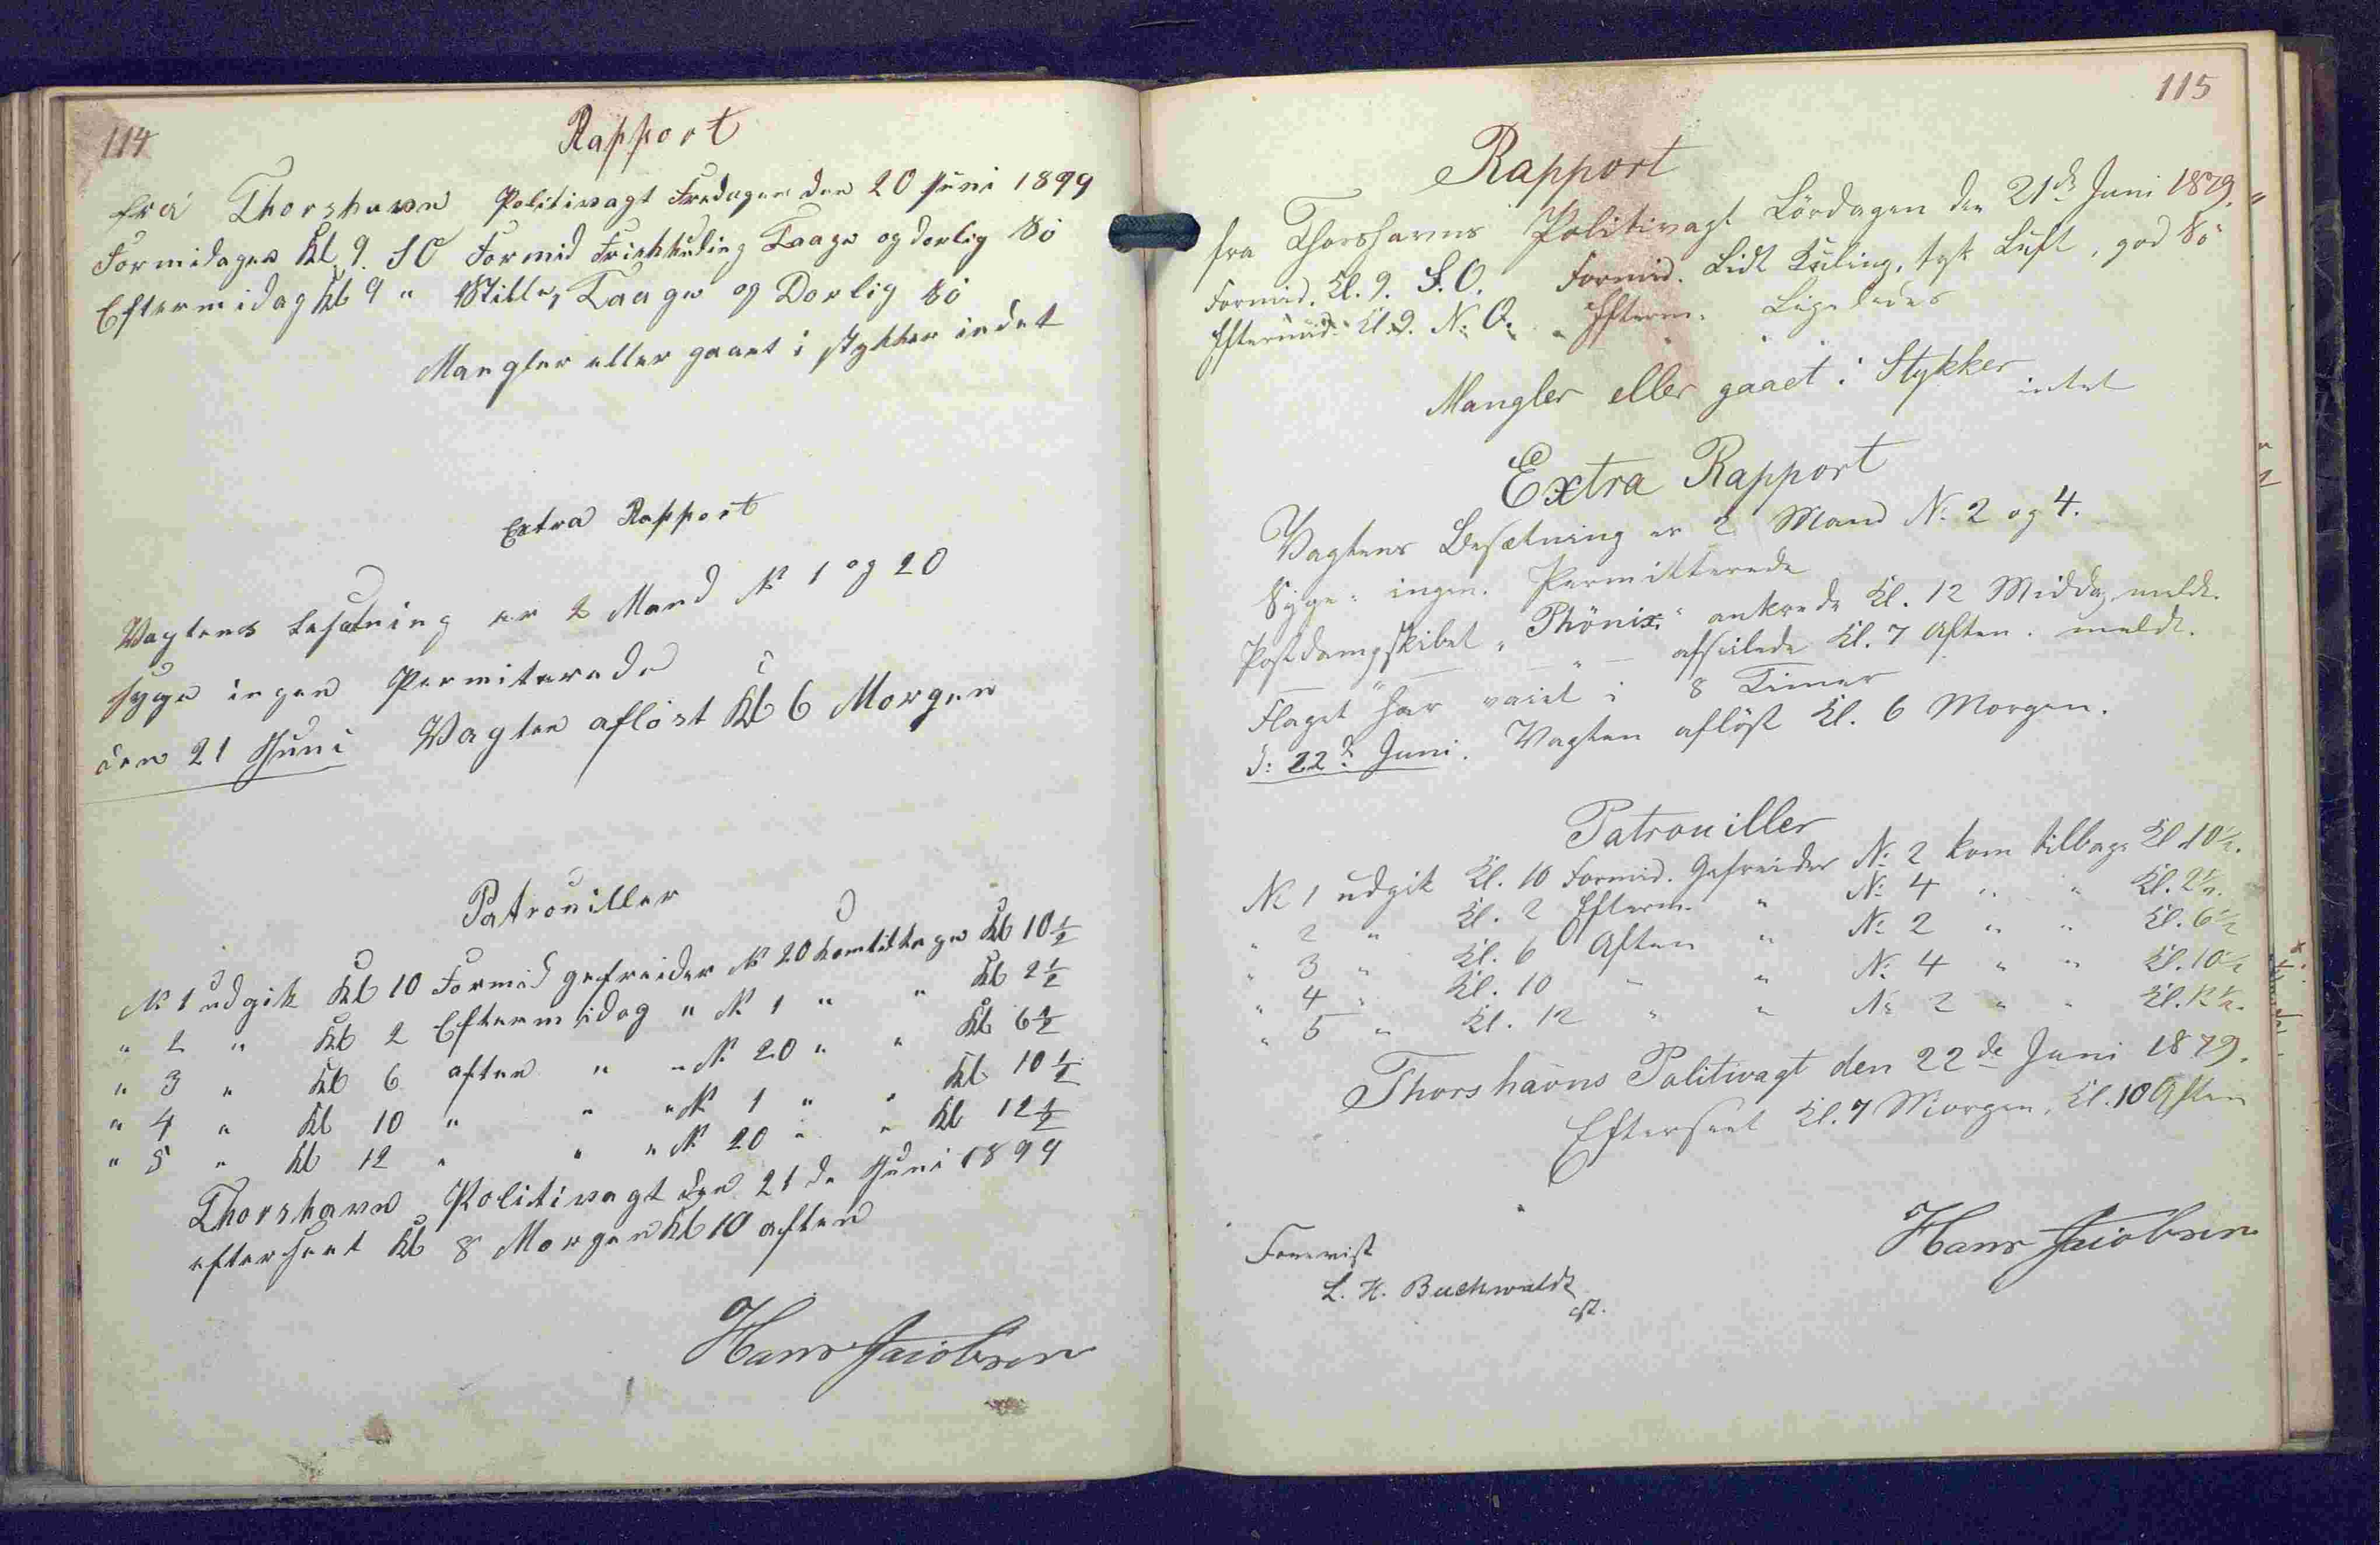 114
Rapport
fra Thorshavn Politivagt Fredagen den 20 Juni 1879
Formidagen Kl 9. SO Formid Friskkuling Taage og dorlig Sö
Eftermidag Kl 9 " Stille, Taage og Dorlig Sö
Mangler eller gaaet i stykker indet
Extra Rapport
Vagtens besætning er 2 Mand N 1 og 20
syge ingen Permiterede
den 21 Juni Vagten aflöst Kl 6 Morgen
Patrouiller
N 1 udgik Kl 10 Formid gefreider N 20 kom tilbage Kl 10 1/2
" 2 " Kl 2 Eftermidag " N 1 " " Kl 2 1/2
" 3 " Kl 6 aften " " N 20 " " Kl 6 1/2
" 4 " Kl 10 " " " N 1 " " Kl 10 1/2
" 5 " Kl 12 " " " N 20 " " Kl 12 1/2
Thorshavn Politivagt den 21 de Juni 1879
efterseet Kl 8 Morgen Kl 10 aften
Hans Jacobsen
115
Rapport
fra Thorshavns Politivagt Lördagen den 21de Juni 1879.
Formid. Kl. 9. S.O. Formid. Lidt Kuling, tyk Luft, god Sö
Eftermid. Kl. 9. N.O. " Efterm. Ligeledes
Mangler eller gaaet i Stykker intet
Extra Rapport
Vagtens Besætning er 2 Mand N. 2 og 4.
Syge: ingen. Permitterede
Postdampskibet "Phönix" ankrede Kl. 12 Middag meldt.
— " — afseilede Kl. 7 Aften. meldt.
Flaget har vaiet i 8 Timer
d: 22d Juni. Vagten aflöst Kl. 6 Morgen.
Patrouiller
N 1 udgik Kl. 10 Formid. Gefreider N: 2 kom tilbage Kl. 10 1/2.
" 2 " Kl. 2 Efterm. " N: 4 " " Kl. 2 1/2.
" 3 " Kl. 6 Aften " N: 2 " " Kl. 6 1/2
" 4 " Kl. 10 " " N: 4 " " Kl. 10 1/2
" 5 " Kl. 12 " " N: 2 " " Kl. 12 1/2.
Thorshavns Politivagt den 22de Juni 1879.
Efterseet Kl. 7 Morgen, Kl. 10 Aften
Hans Jacobsen
Forevist
L. H. Buchwaldt